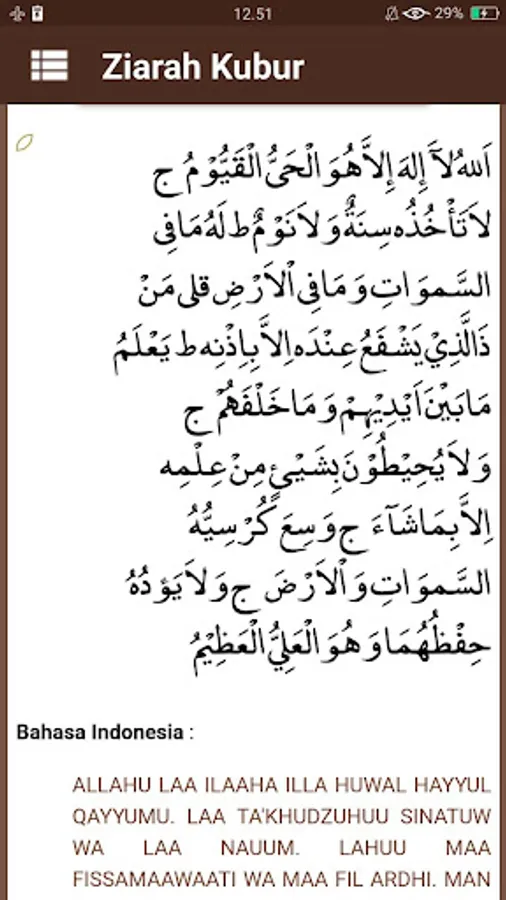 12.51
29%
Ziarah Kubur
اَللهُ لَآ إِلهَ إِلاَّ هُوَ الْحَيُّ الْقَيُّوْمُ ج
لاَ تَأْخُذُه سِنَةٌ وَلاَ نَوْمٌ ط لَهُ مَا فِى
السَّموَاتِ وَمَا فِى اْلاَرْضِ قلى مَنْ
ذَا الَّذِيْ يَشْفَعُ عِنْدَه اِلاَّ بِاِذْنِه ط يَعْلَمُ
مَا بَيْنَ اَيْدِيْهِمْ وَمَا خَلْفَهُمْ ج
وَلاَ يُحِيْطُوْنَ بِشَيْئٍ مِنْ عِلْمِه
اِلاَّ بِمَا شَآءَ ج وَسِعَ كُرْسِيُّهُ
السَّموَاتِ وَاْلاَرْضَ ج وَلاَ يَؤدُهُ
حِفْظُهُمَا وَهُوَ الْعَلِيُّ الْعَظِيْمُ
Bahasa Indonesia :
ALLAHU LAA ILAAHA ILLA HUWAL HAYYUL
QAYYUMU. LAA TA'KHUDZUHUU SINATUW
WA LAA NAUUM. LAHUU MAA
FISSAMAAWAATI WA MAA FIL ARDHI. MAN